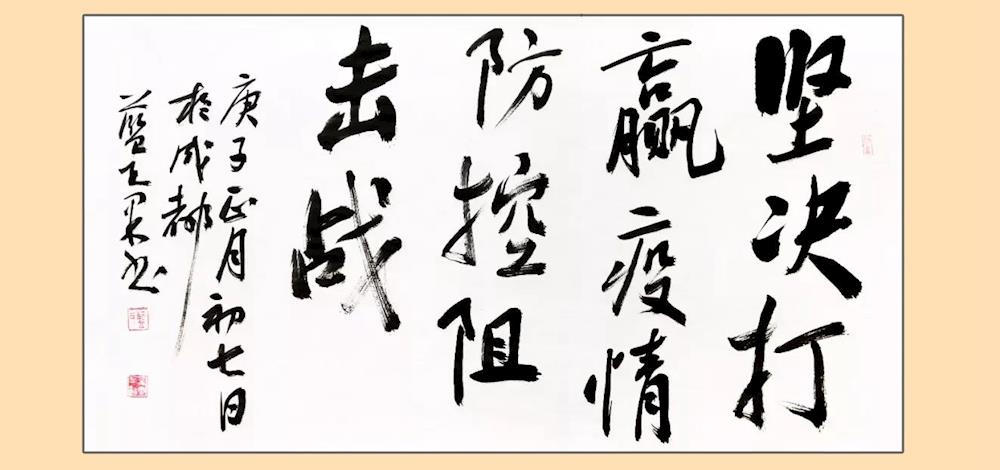 坚决打
赢疫情
防控阻
击战
庚子正月初七日
於成都
蓝天
书